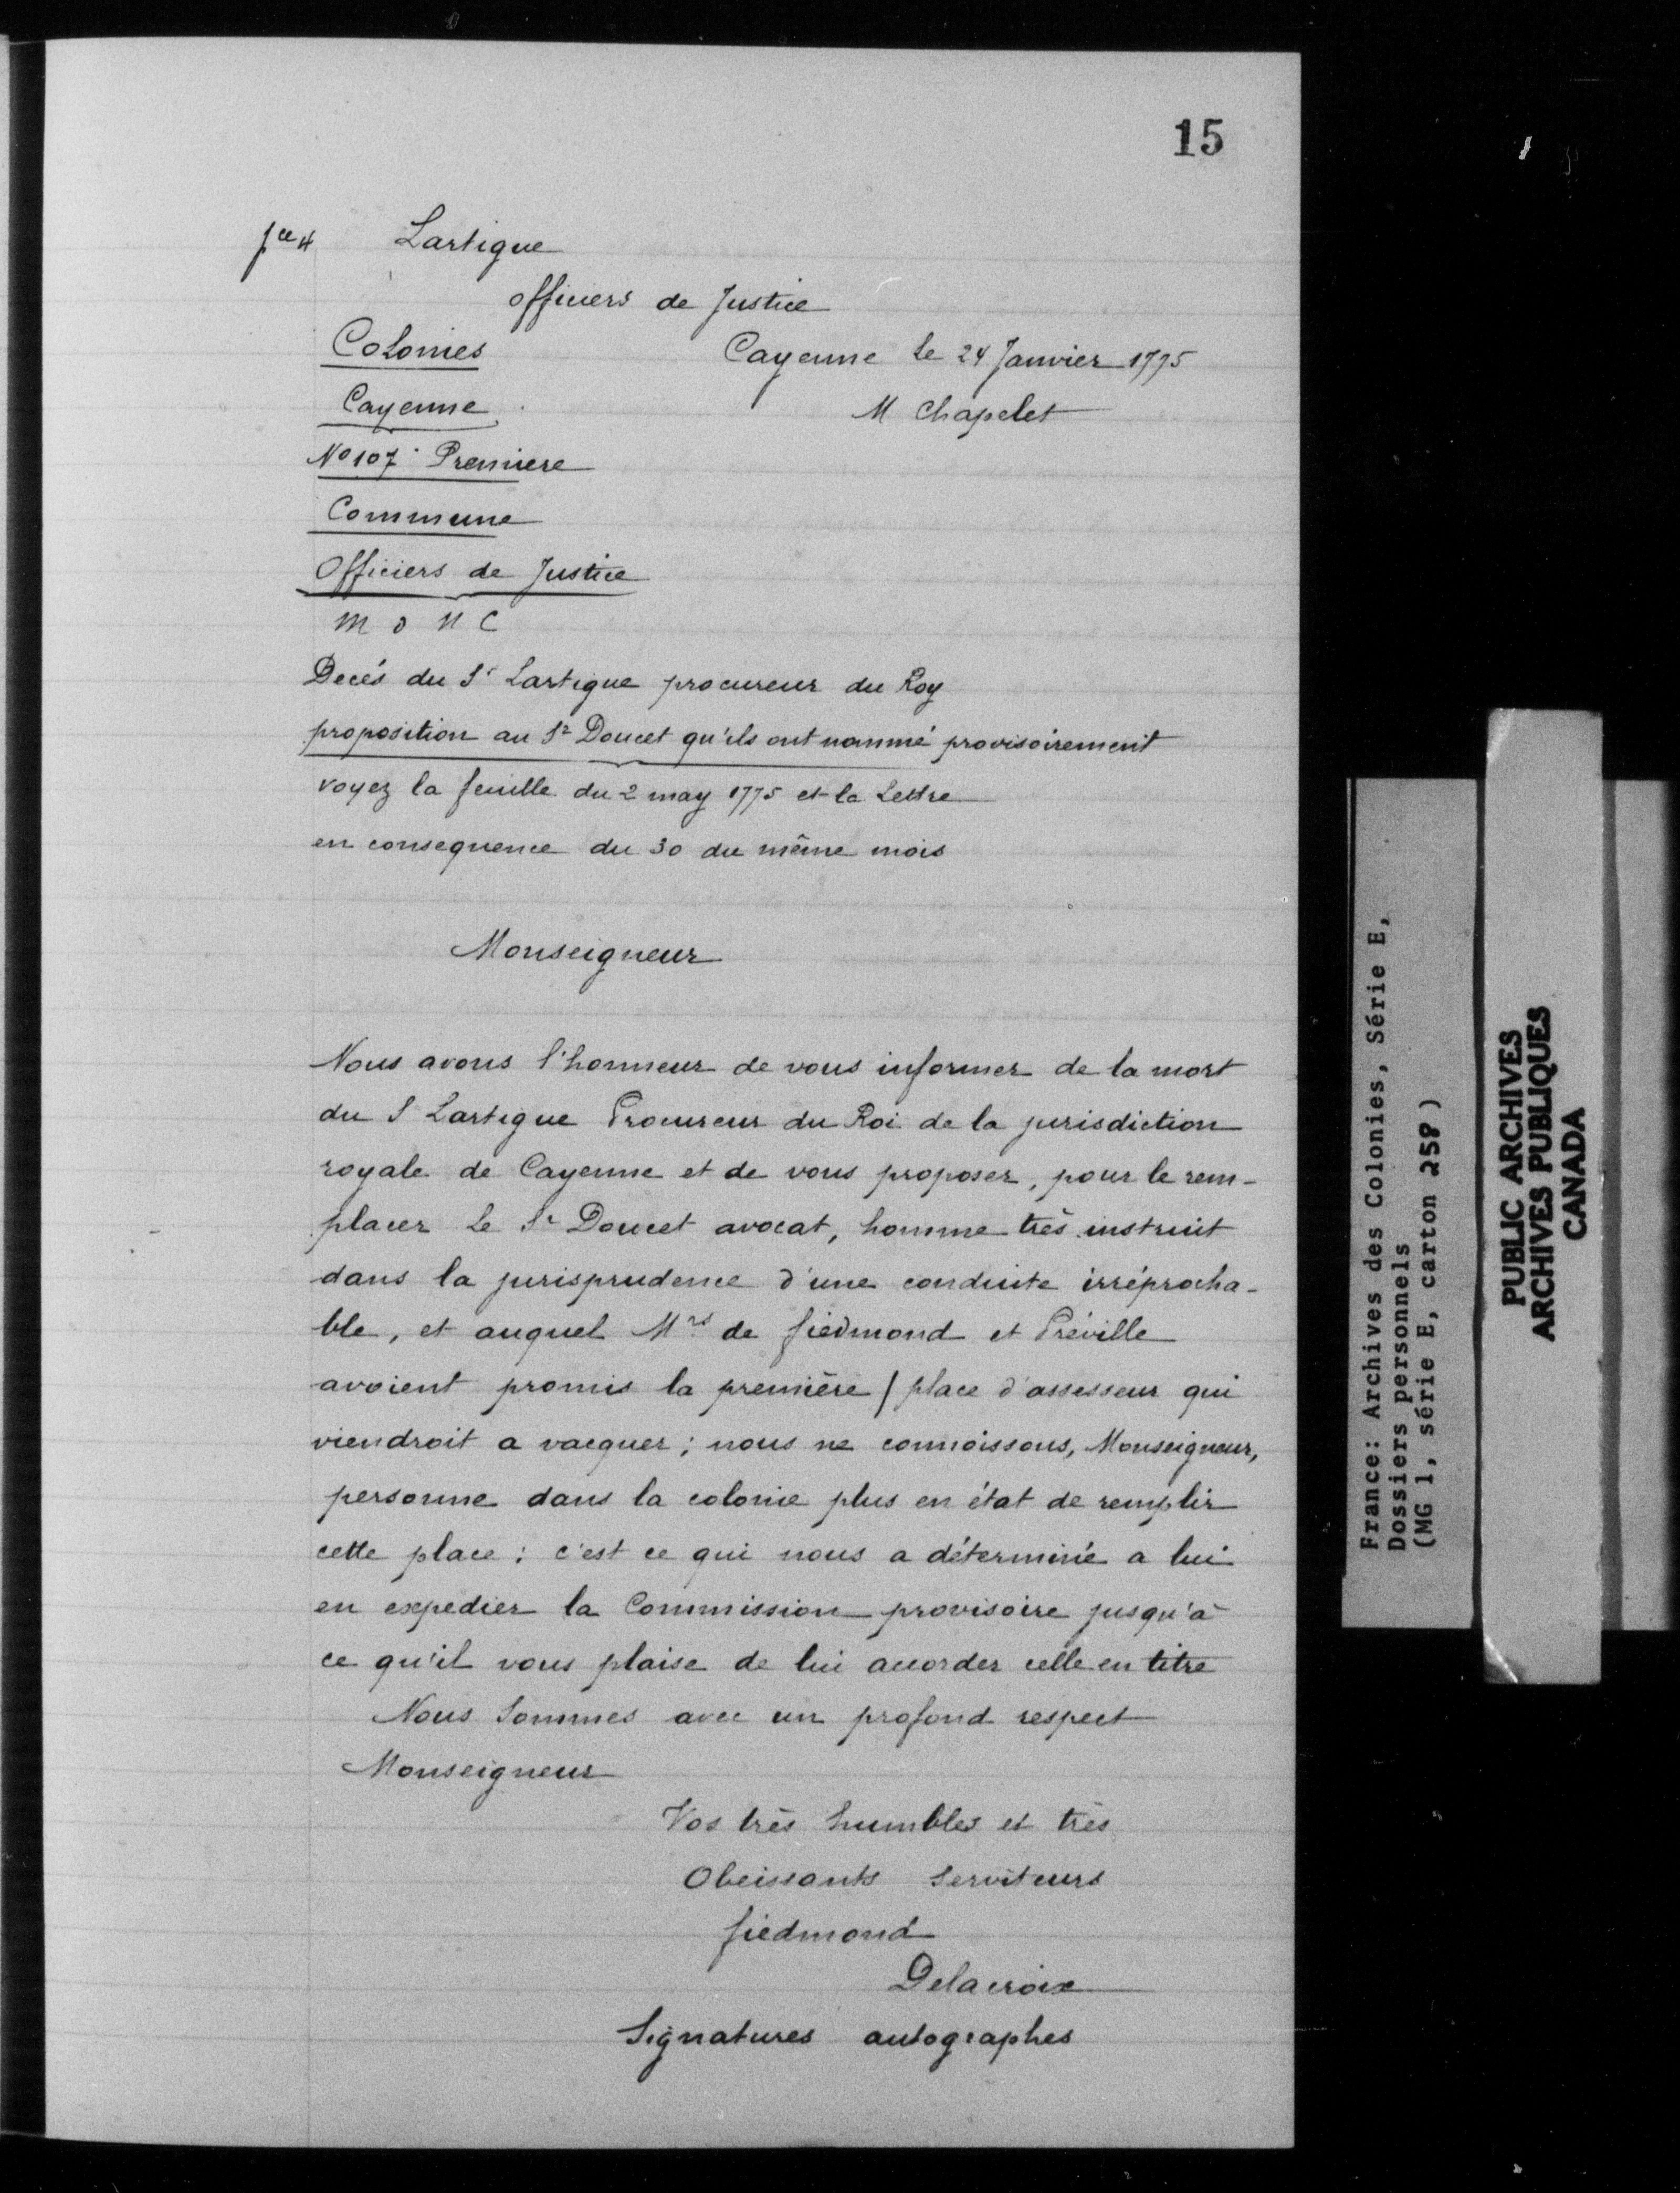 15
pce 4 Lartigue
officiers de Justice
Colonies
Cayenne le 24 Janvier 1775
Cayenne
M Chapelet
No 107 Premiere
Commune
Officiers de Justice
M D N C
Decés du Sr Lartigue procureur du Roy
proposition au Sr Doucet qu'ils ont nommé provisoirement
voyez la feuille du 2 may 1775 et la Lettre
en consequence du 30 du même mois
Monseigneur
Nous avons l'honneur de vous informer de la mort
du S Lartigue Procureur du Roi de la jurisdiction
royale de Cayenne et de vous proposer, pour le rem-
placer le Sr Doucet avocat, homme très instruit
dans la jurisprudence d'une conduite irréprocha-
ble, et auquel Mrs de fiedmond et Préville
avoient promis la première / place d'assesseur qui
viendroit a vacquer ; nous ne connoissons, Monseigneur,
personne dans la colonie plus en état de remplir
cette place : c'est ce qui nous a déterminé a lui
en expedier la Commission provisoire jusqu'à
ce qu'il vous plaise de lui accorder celle en titre
Nous Sommes avec un profond respect
Monseigneur
Vos très humbles et très
Obeissants Serviteurs
fiedmond
Delacroix
Signatures autographes
France: Archives des Colonies, Série E,
Dossiers personnels
(MG 1, série E, carton 258)
PUBLIC ARCHIVES
ARCHIVES PUBLIQUES
CANADA